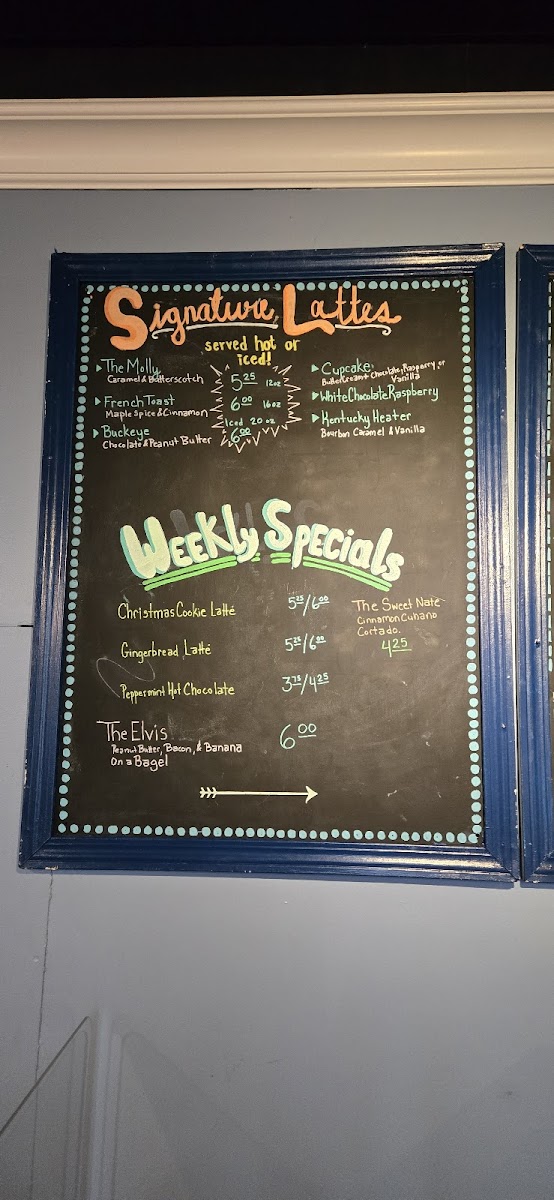 Signature Lattes
served hot or
iced!
The Molly
Caramel & Butterscotch
French Toast
Maple Spice & Cinnamon
Buckeye
Chocolate & Peanut Butter
5.25 12oz
6.00 16oz
Iced 20oz
6.00
Cupcake
Buttercream + Chocolate, Raspberry, or
Vanilla
White Chocolate Raspberry
Kentucky Heater
Bourbon Caramel & Vanilla
Weekly Specials
Christmas Cookie Latté 5.25/6.00
Gingerbread Latté 5.25/6.00
Peppermint Hot Chocolate 3.75/4.25
The Elvis 6.00
Peanut Butter, Bacon, & Banana
On a Bagel
The Sweet Nate
Cinnamon Cubano
Cortado.
4.25